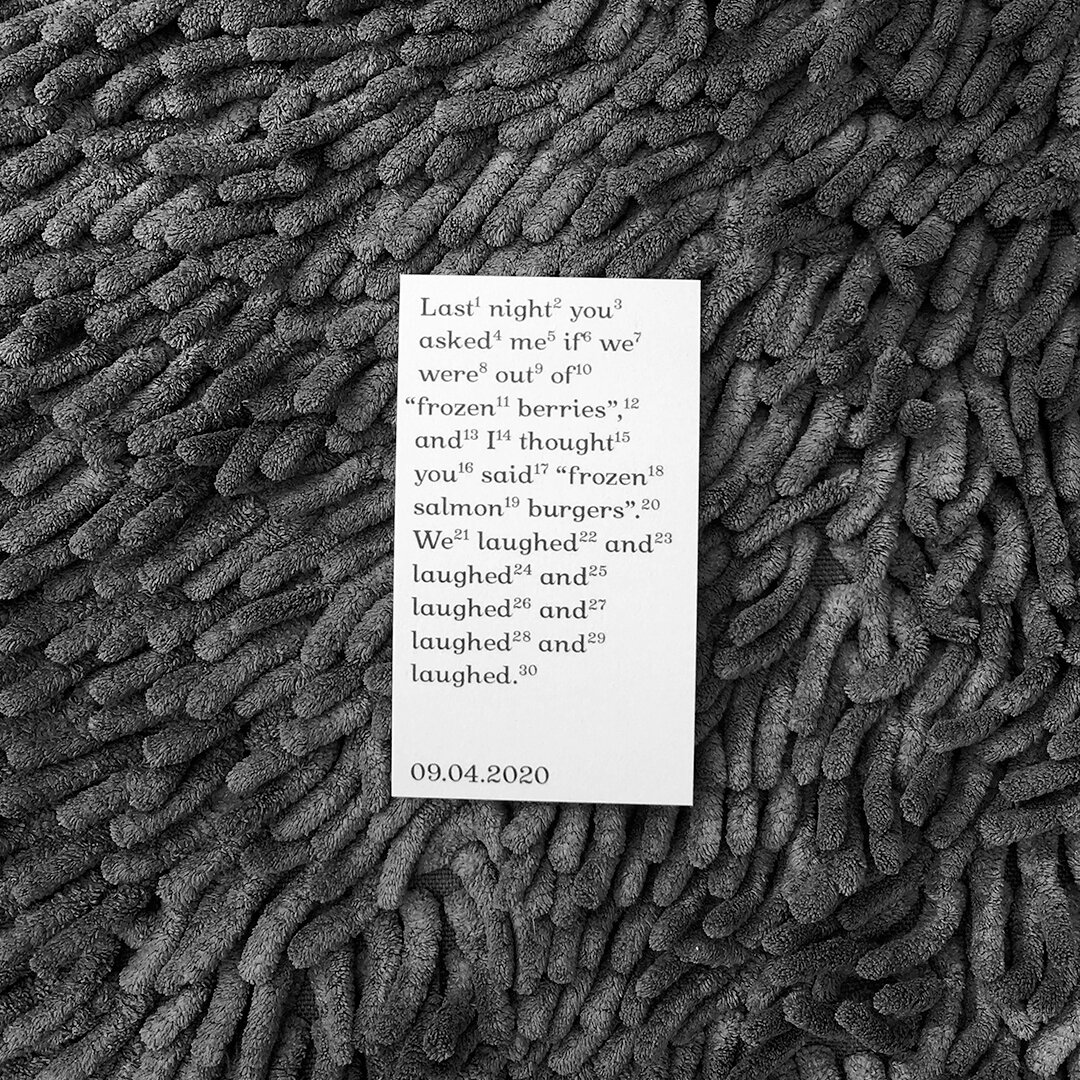 Last¹ night² you³
asked⁴ me⁵ if⁶ we⁷
were⁸ out⁹ of¹⁰
“frozen¹¹ berries”,¹²
and¹³ I¹⁴ thought¹⁵
you¹⁶ said¹⁷ “frozen¹⁸
salmon¹⁹ burgers”.²⁰
We²¹ laughed²² and²³
laughed²⁴ and²⁵
laughed²⁶ and²⁷
laughed²⁸ and²⁹
laughed.³⁰
09.04.2020